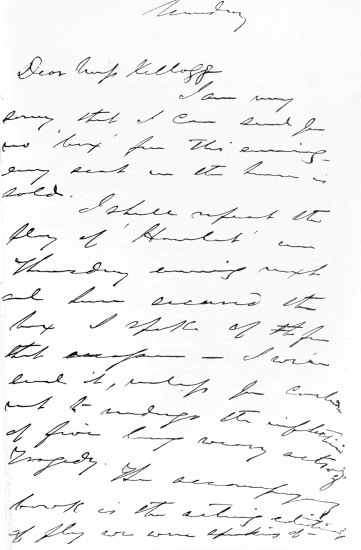 Tuesday
Dear Miss Kellogg
I am very
sorry that I can send you
no 'box' for this evening -
every seat in the house is
sold.
I shall repeat the
play of 'Hamlet' on
Thursday evening next
and have secured the
box I spoke of for
that occasion — I will
send it, unless you
not to undergo the infliction
of five long weary acts of
Tragedy. The accompanying
book is the acting edition
of play we were speaking of -